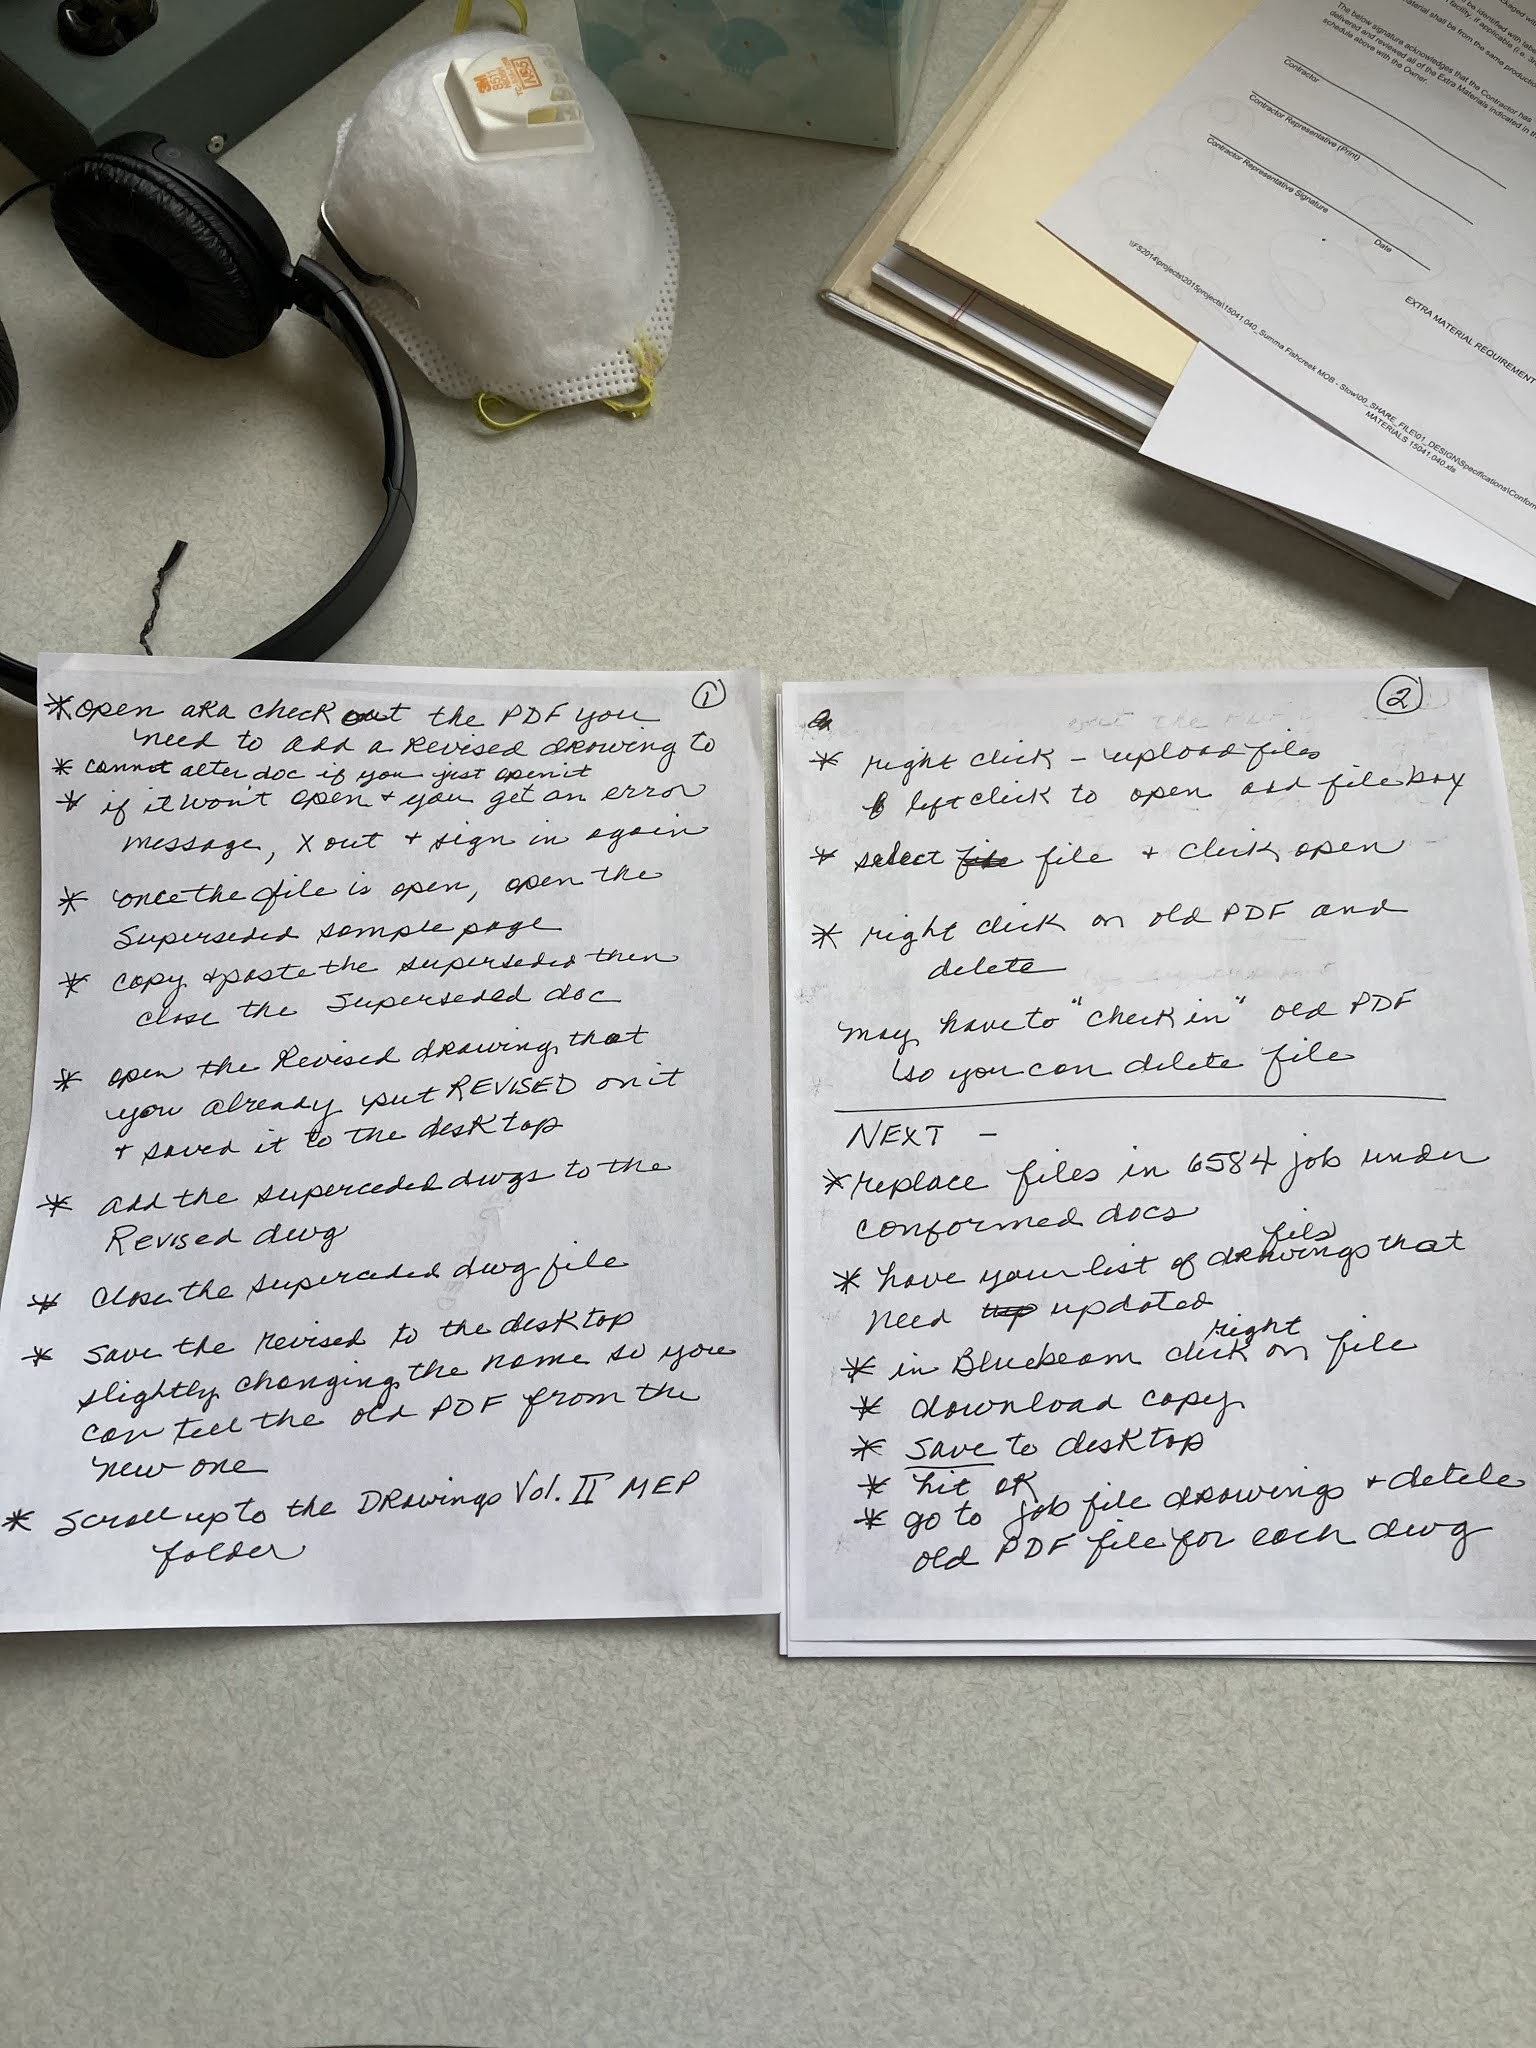 3M
8511
N95
ckaged with
be identified with labe
facility, if applicable (i.e. 3r
material shall be from the same production
The below signature acknowledges that the Contractor has
delivered and reviewed all of the Extra Materials indicated in th
schedule above with the Owner.
Contractor
Contractor Representative (Print)
Contractor Representative Signature
Date
EXTRA MATERIAL REQUIREMENT
\\FS2014\projects\2015projects\15041.040_Summa Fishcreek MOB - Stow\00_SHARE_FILE\01_DESIGN\Specifications\Conform
MATERIALS 15041.040.xls
1
* open aka check out the PDF you
need to add a Revised drawing to
* cannot alter doc if you just open it
* if it won't open + you get an error
message, X out + sign in again
* once the file is open, open the
Superseded sample page
* copy + paste the superseded then
close the Superseded doc
* open the Revised drawing that
you already put REVISED on it
+ saved it to the desktop
* add the superceded dwgs to the
Revised dwg
* Close the superceded dwg file
* Save the revised to the desktop
slightly changing the name so you
can tell the old PDF from the
new one
* Scroll up to the DRawings Vol. II MEP
folder
2
* right click - upload files
left click to open add file box
* select file + click open
* right click on old PDF and
delete
may have to "check in" old PDF
so you can delete file
NEXT -
* replace files in 6584 job under
conformed docs
* have your list of drawings files that
need updated
* in Bluebeam right click on file
* download copy
* save to desktop
* hit ok
* go to job file drawings + detele
old PDF file for each dwg